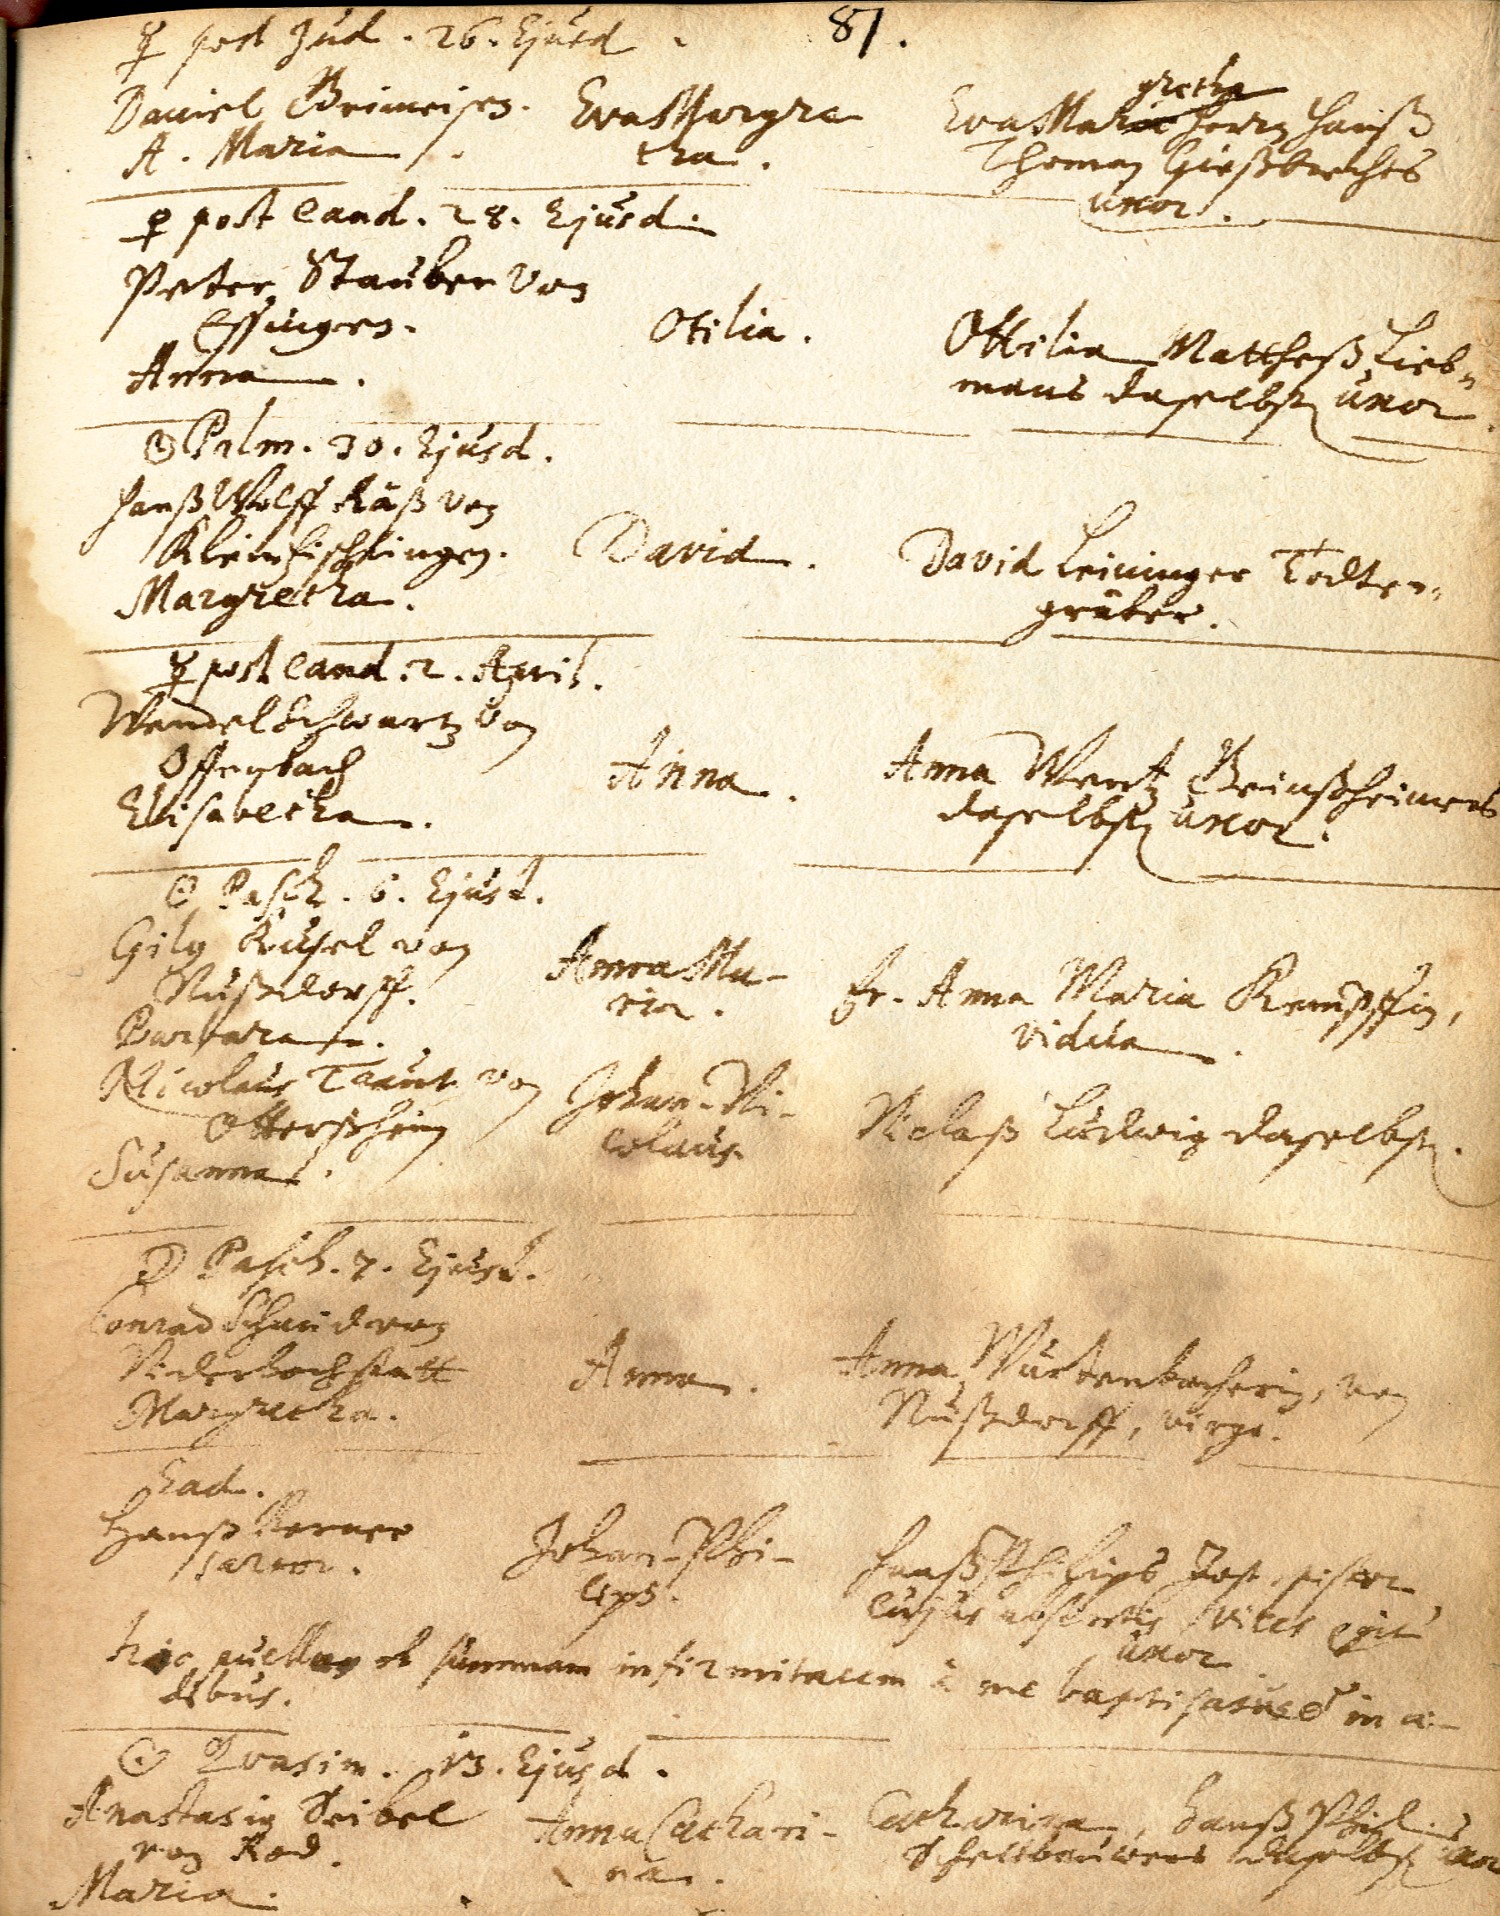 81.
☿ post Jud. 26. Ejusd.
Daniel
A. Maria.
Eva Margre
tha.
gretha
Eva Maria Herrn Hanß
Thoman
uxor.
♀ post Cand. 28. Ejusd.
Peter Stauber von
Essingen.
Anna.
Otilia.
Ottilia Mattheß Lieb-
mans daselbst uxor.
☉ Palm. 30. Ejusd.
Hanß Wolff Käß von
Kleinfischlingen.
Margretha.
David.
David Leininger Todten-
gräber.
☿ post Cand. 2. April.
Wendel Schwartz von
Offenbach
Elisabetha.
Anna.
Anna Wentz
daselbst uxor.
☉ Pasch. 6. Ejusd.
Gilg Kusel von
Nußdorff.
Barbara.
Anna Ma-
ria.
Fr. Anna Maria Kempffin,
vidua.
Nicolaus Traut von
Otterßheim
Susanna.
Johan-Ni-
colaus.
Niclaß Ludwig daselbst.
☽ Pasch. 7. Ejusd.
Conrad Schmid von
Niderhochstatt
Margretha.
Anna.
Anna Würtenbecherin, von
Nußdorff, virgo.
Ead.
Hanß Kerner
sartor.
Johan-Phi-
lips.
Hanß Philips Jost, pistor,
cujus absentis vices egit
uxor.
hic ob summam infirmitatem à me baptisatus est in æ-
dibus.
☉ Quasim. 13. Ejusd.
Anastasius Seibel
von Rod.
Maria.
Anna Cathari-
na.
Catharina, Hanß Phil.
daselbst uxor